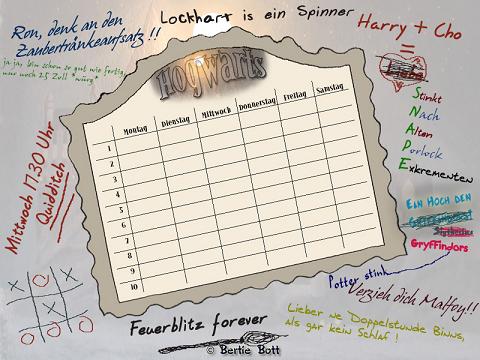 Lockhart is ein Spinner
Ron, denk an den
Zaubertränkeaufsatz!!
ja ja, bin schon so gut wie fertig,
nur noch 25 Zoll *würg*
Harry + Cho
=
Liebe
Stinkt
Nach
Alten
Porlock
Exkrementen
Hogwarts
Montag Dienstag Mittwoch Donnerstag Freitag Samstag
1
2
3
4
5
6
7
8
9
10
Mittwoch 17.30 Uhr
Quidditch
Ein Hoch den
Gryffindors
Potter stinkt
Verzieh dich Malfoy!!
Lieber ne Doppelstunde Binns,
als gar kein Schlaf!
X O X
X O
O X O
Feuerblitz forever
© Bertie Bott